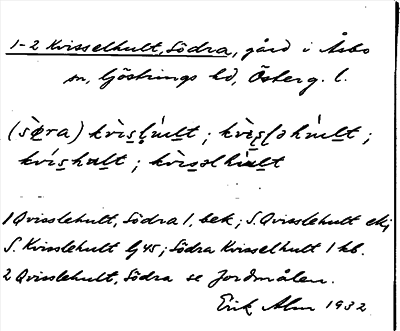 1-2 Kvisselhult, Södra, gård i Åsbo
sn, Göstrings hd, Österg. l.
(sö̀ra) kvìs̱ḷu̇ḻt ; kvès̱ḷəhu̇ḻt ;
kvís̱hɑḻt ; kvìs̱əlhu̇ḻt
1 Qvisslehult, Södra l, bek ; S. Qvisslehult ekj
S. Kvisslehult Gj 45 ; Södra Kvisselhult 1 kb.
2 Qvisslehult, Södra se Jordmålen.
Erik Alm 1932